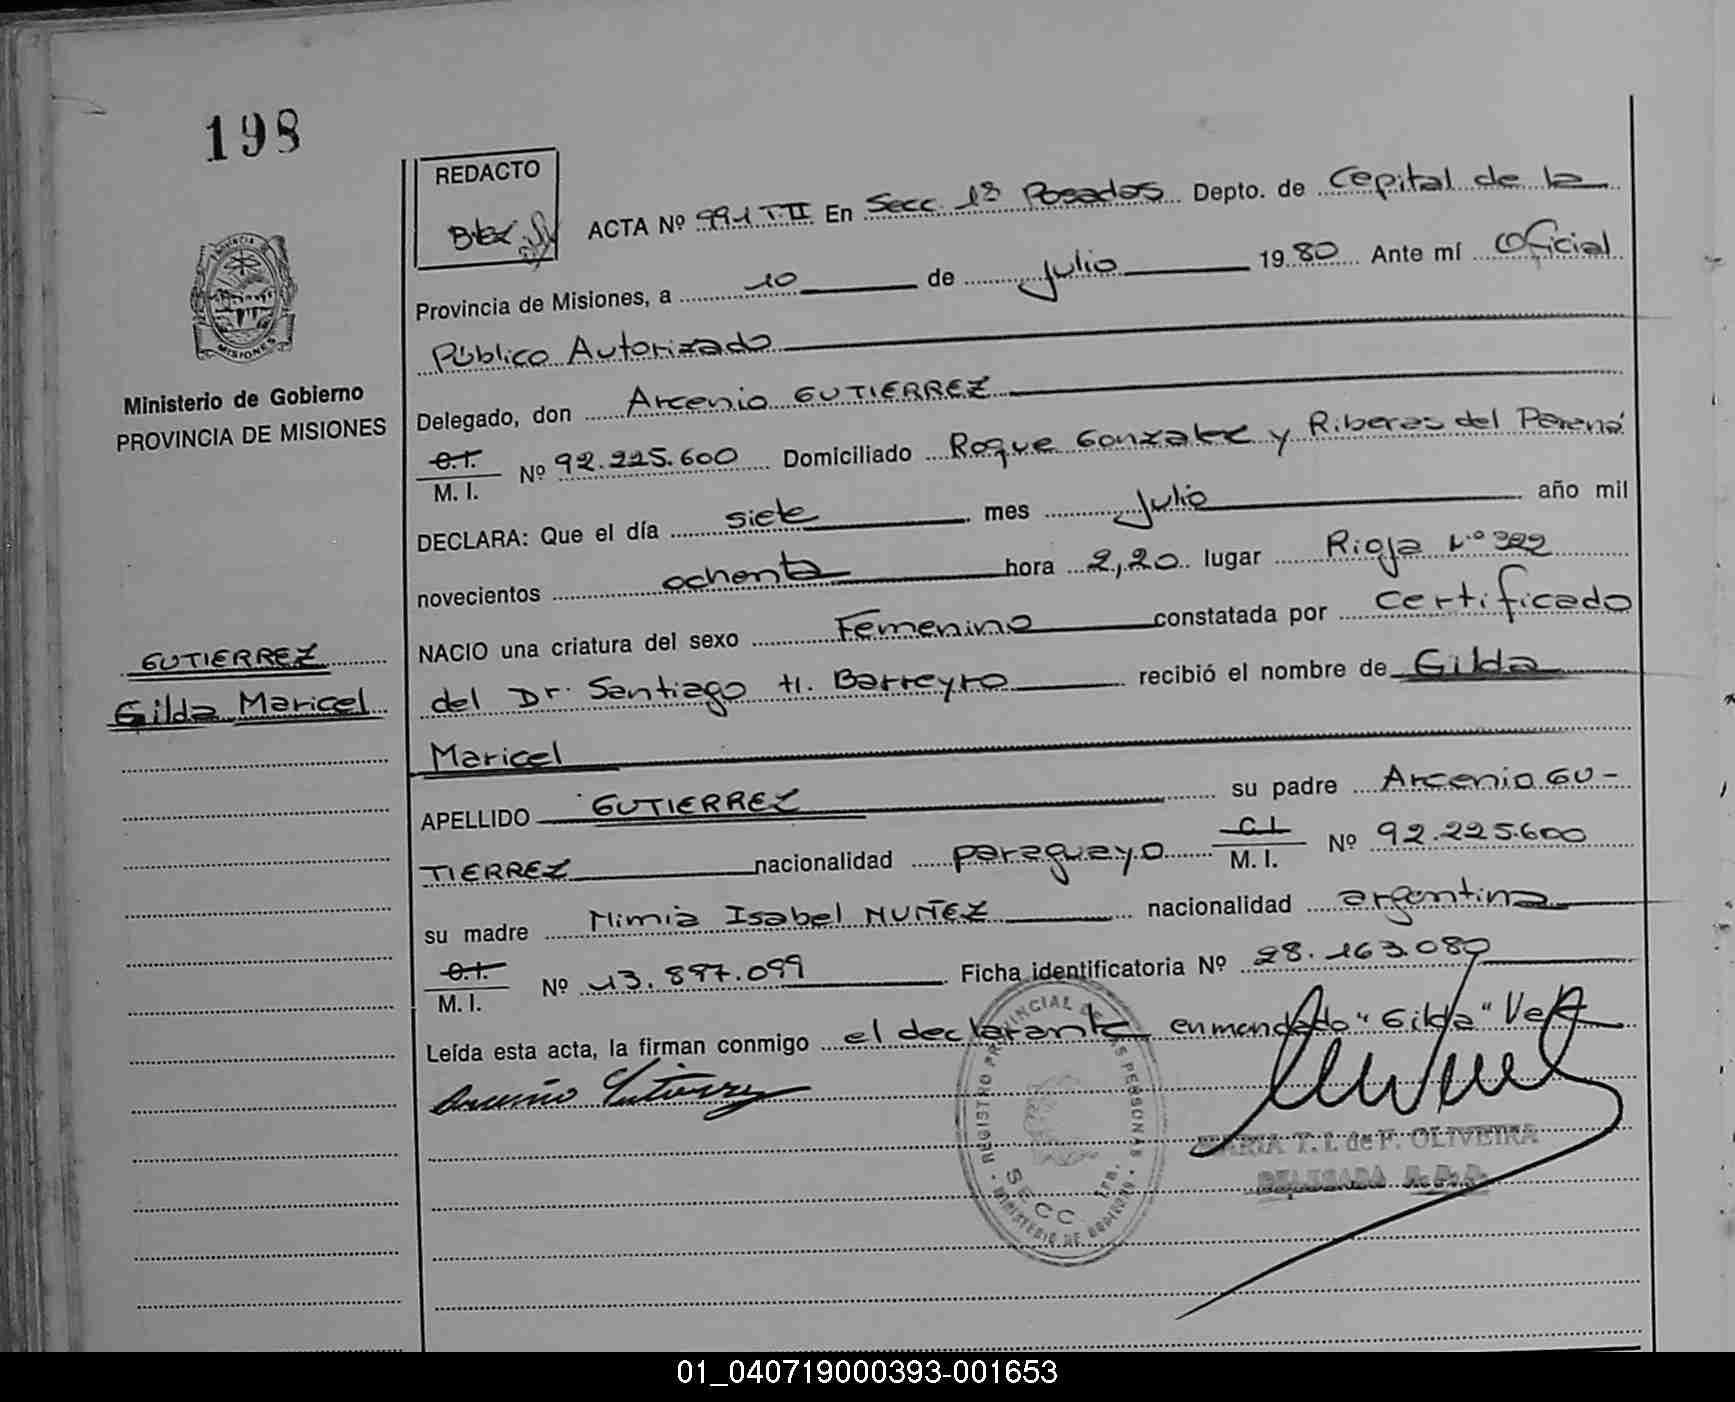 198
REDACTO
ACTA Nº 991 T.II En Secc. 1ª Posadas Depto. de Capital de la
Provincia de Misiones, a 10 de Julio 1980 Ante mí Oficial
Público Autorizado
Delegado, don Arcenio GUTIERREZ
C.I. M. I. Nº 92.225.600 Domiciliado Roque Gonzalez y Riberas del Paraná
DECLARA: Que el día siete mes Julio año mil
novecientos ochenta hora 2,20 lugar Rioja Nº 322
NACIO una criatura del sexo Femenino constatada por certificado
del Dr. Santiago H. Barreyro recibió el nombre de Gilda
Maricel
APELLIDO GUTIERREZ su padre Arcenio GU-
TIERREZ nacionalidad paraguayo C.I. M. I. Nº 92.225.600
su madre Mimia Isabel NUÑEZ nacionalidad argentina
C.I. M. I. Nº 13.897.099 Ficha identificatoria Nº 28.163.080
Leída esta acta, la firman conmigo el declarante enmendado "Gilda" Vale
Arcenio Gutierrez
MARIA T. I. de F. OLIVEIRA
DELEGADA
REGISTRO PROVINCIAL DE LAS PERSONAS
MINISTERIO DE GOBIERNO
SECC
PROVINCIA DE
MISIONES
Ministerio de Gobierno
PROVINCIA DE MISIONES
GUTIERREZ
Gilda Maricel
01_040719000393-001653